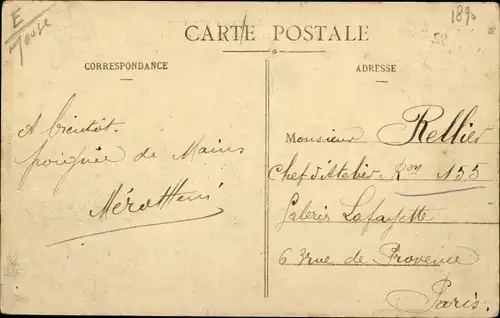 E
1890
CARTE POSTALE
CORRESPONDANCE
ADRESSE
A bientôt.
poignée de Mains
Monsieur Rellier
Chef d'Atelier Ron 155
Galeries Lafayette
63 rue de Provence
Paris.